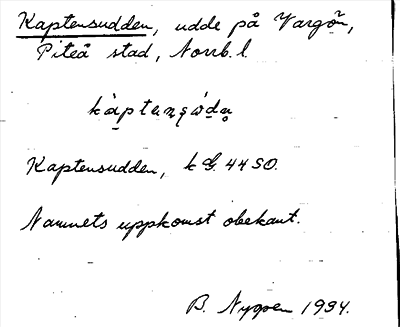 Kaptensudden, udde på Vargön,
Piteå stad, Norrb. l.
Kaptensudden, k 44 SO.
Namnets uppkomst obekant.
B. Nygren 1934.